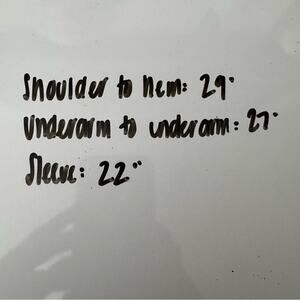 Shoulder to hem: 29"
Underarm to underarm: 27"
Sleeve: 22"